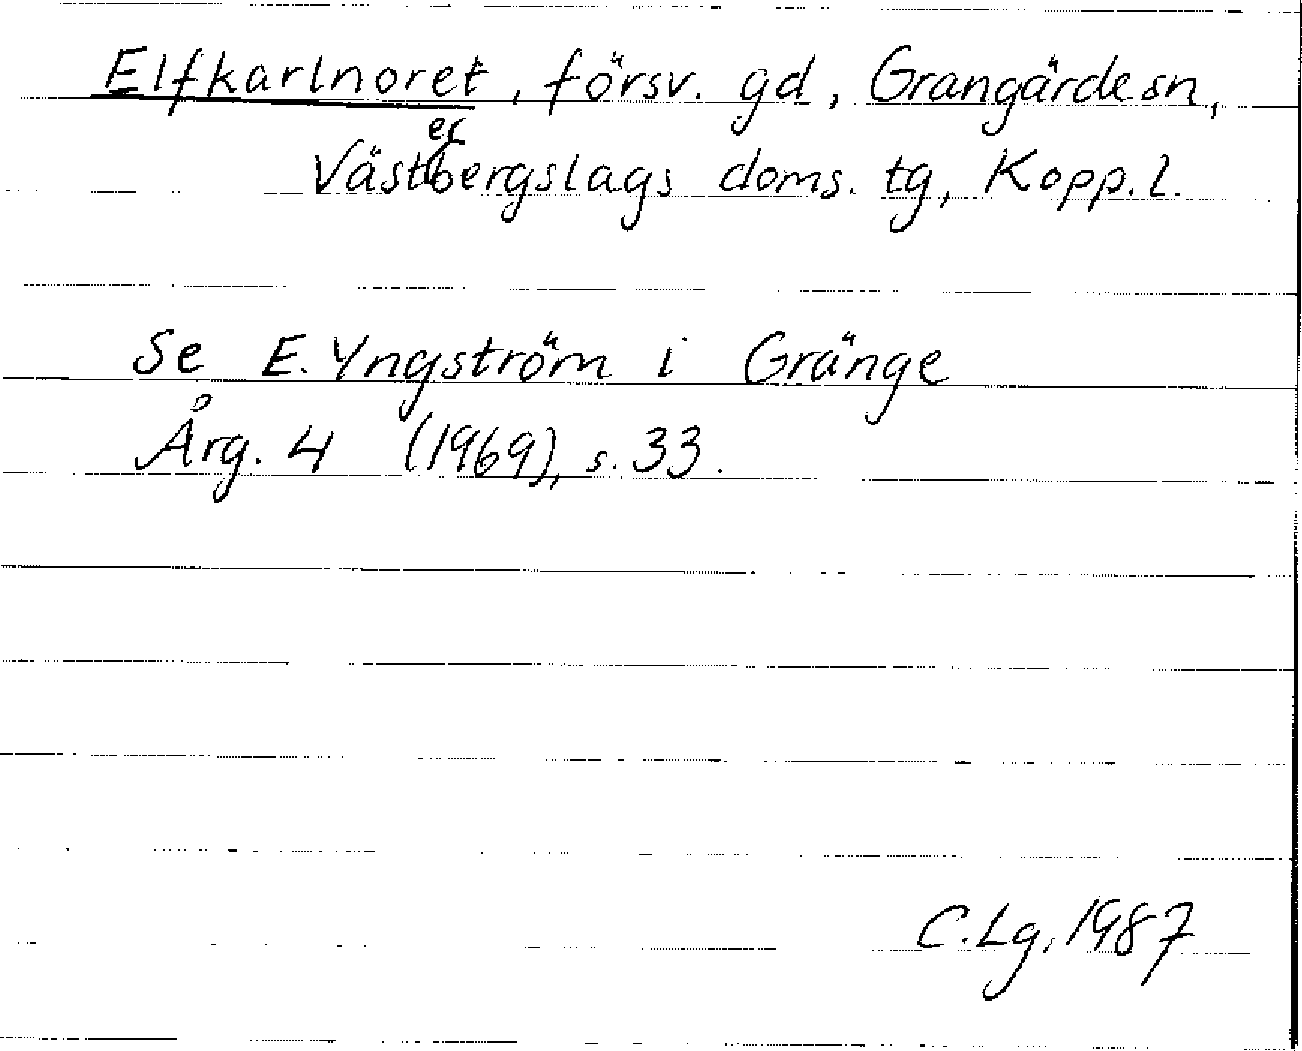 Elfkarlnoret, försv. gd, Grangärde sn,
Västerbergslags doms. tg, Kopp. l.
Se E. Yngström i Gränge
Årg. 4 (1969), s. 33.
C. Lg. 1987